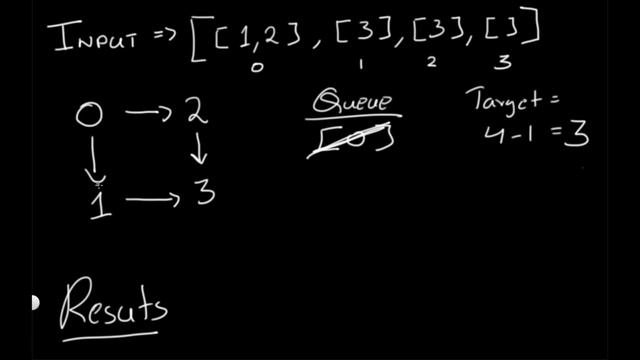 INPUT => [[1,2], [3], [3], []]
0 1 2 3
0 → 2
1 → 3
Queue
[0]
Target =
4-1 = 3
Resuts